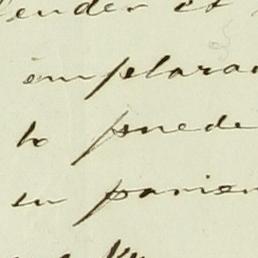 ender et
emplarac
lo puede
su parien